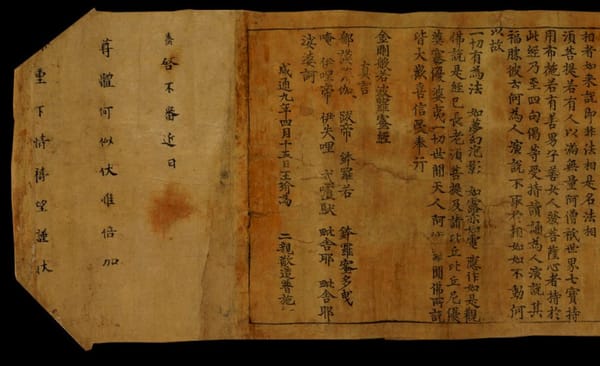 相者如来說即非法相是名法相
須菩提若有人以滿無量阿僧祇世界七寳持
用布施若有善男子善女人發菩薩心者持於
此經乃至四句偈等受持讀誦為人演說其
福勝彼云何為人演說不取於相如如不動何
以故
一切有為法 如夢幻泡影 如露亦如電 應作如是觀
佛說是經已長老須菩提及諸比丘比丘尼優
婆塞優婆夷一切世間天人阿脩羅聞佛所說
皆大歡喜信受奉行
金剛般若波羅蜜經
真言
那謨婆伽 跋帝 鉢羅若 鉢羅蜜多曳
唵 伊哩帝 伊失哩 戍嚧馱 毗舍耶 毗舍耶
娑婆訶
咸通九年四月十五日王玠為 二親敬造普施
答不審近日
尊體何似伏惟倍加
重下情禱望謹狀